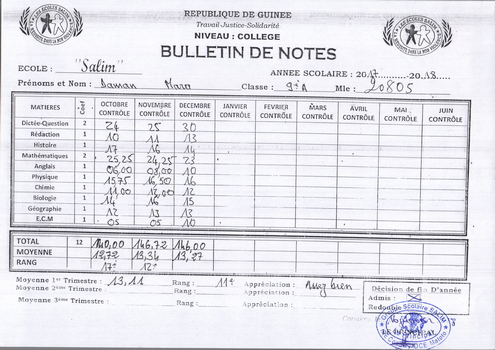 REPUBLIQUE DE GUINEE
Travail-Justice-Solidarité
NIVEAU : COLLEGE
BULLETIN DE NOTES
ECOLE : "Salim" ANNEE SCOLAIRE : 2017..........2018.....
Prénoms et Nom : Maro Classe : 9è A Mle : 20805
MATIERES Coef OCTOBRE CONTRÔLE NOVEMBRE CONTRÔLE DECEMBRE CONTRÔLE JANVIER CONTRÔLE FEVRIER CONTRÔLE MARS CONTRÔLE AVRIL CONTRÔLE MAI CONTRÔLE JUIN CONTRÔLE
Dictée-Question 2 24 25 30
Rédaction 1 10 11 13
Histoire 1 17 16 14
Mathématiques 2 25,25 24,25 23
Anglais 1 06,00 08,00 10
Physique 1 15,75 16,50 16
Chimie 1 11,00 12
Biologie 1 14 16 15
Géographie 1 12 13 13
E.C.M 1 05 05 10
TOTAL 12 140,00 146,72 146,00
MOYENNE 12,72 13,34 13,27
RANG 17è 12è
Moyenne 1er Trimestre : 13,11 Rang : 11è Appréciation : Assez bien
Moyenne 2ème Trimestre : Rang : Appréciation :
Moyenne 3ème Trimestre : Rang : Appréciation :
Décision de fin D'année
Admis : X
Redouble